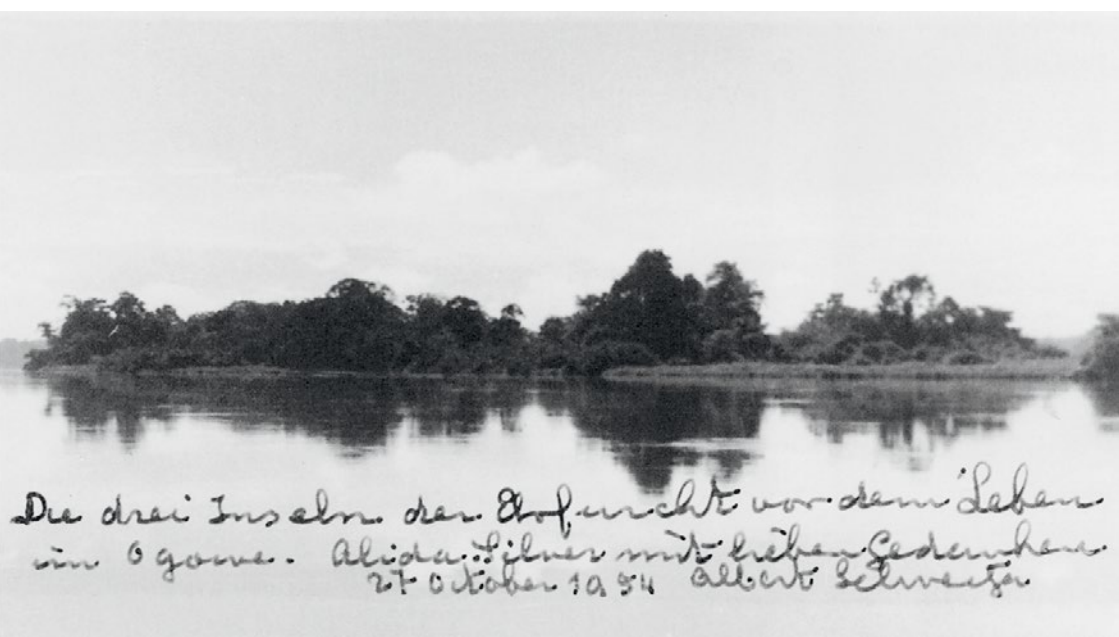 Die drei Inseln der Ehrfurcht vor dem Leben
im Ogowe. Alida Silver mit lieben Gedanken
27 October 1954 Albert Schweitzer